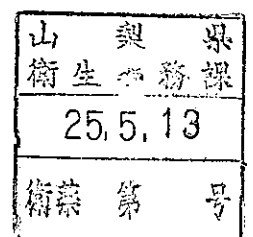 山梨県
衛生薬務課
25.5.13
衛薬 第 号